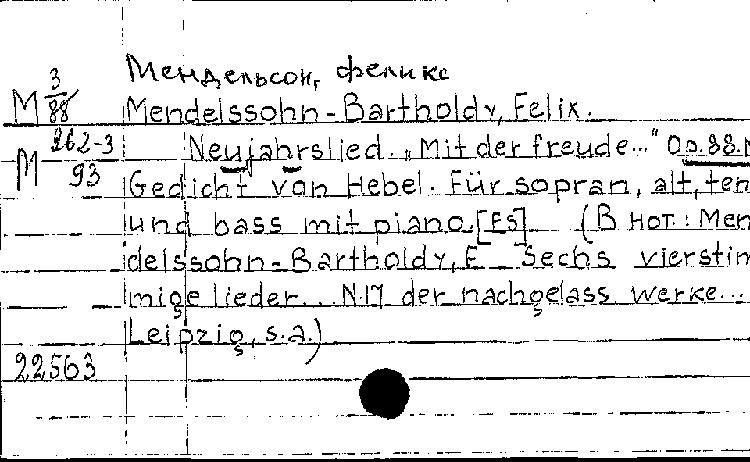 Мендельсон, Феликс
М 3/88 Mendelssohn-Bartholdy, Felix.
М 262-3/93 Neujahrslied. „Mit der freude..." Op.88.
Gedicht von Hebel. Für sopran, alt, ten
und bass mit piano. [Es] (В нот.: Men
delssohn-Bartholdy, F. Sechs vierstim
mige lieder... N.17 der nachgelass werke...
Leipzig, s.a.)
22563